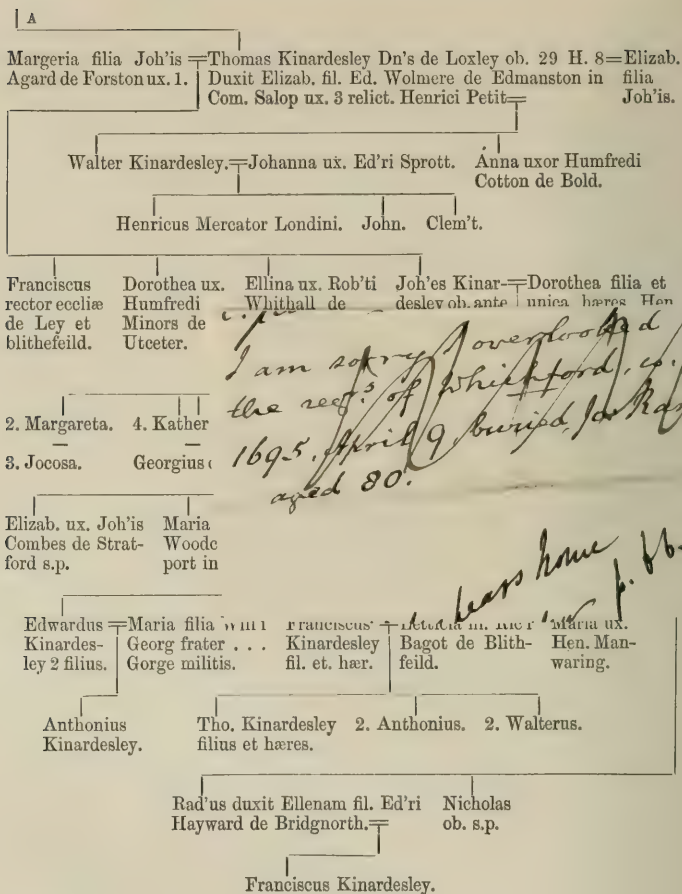 A
Margeria filia Joh'is
Agard de Forston ux. 1.
Thomas Kinardesley Dn's de Loxley ob. 29 H. 8
Duxit Elizab. fil. Ed. Wolmere de Edmanston in
Com. Salop ux. 3 relict. Henrici Petit
Elizab.
filia
Joh'is.
Walter Kinardesley.
Johanna ux. Ed'ri Sprott.
Anna uxor Humfredi
Cotton de Bold.
Henricus Mercator Londini. John. Clem't.
Franciscus
rector eccliæ
de Ley et
blithefeild.
Dorothea ux.
Humfredi
Minors de
Utceter.
Ellina ux. Rob'ti
Whithall de
Joh'es Kinar-
desley ob. ante
Dorothea filia et
unica hæres Hen
I am sorry I overlooked
the regs. of Whichford, co.
1695. April 9 buried, Jas
aged 80.
2. Margareta. 4. Kather
3. Jocosa. Georgius
Elizab. ux. Joh'is
Combes de Strat-
ford s.p.
Maria
Woodc
port in
bears home
p. 66.
Edwardus
Kinardes-
ley 2 filius.
Maria filia
Georg frater . . .
Gorge militis.
Franciscus
Kinardesley
fil. et. hær.
Bagot de Blith-
feild.
Maria ux.
Hen. Man-
waring.
Anthonius
Kinardesley.
Tho. Kinardesley
filius et hæres.
2. Anthonius. 2. Walterus.
Rad'us duxit Ellenam fil. Ed'ri
Hayward de Bridgnorth.
Nicholas
ob. s.p.
Franciscus Kinardesley.